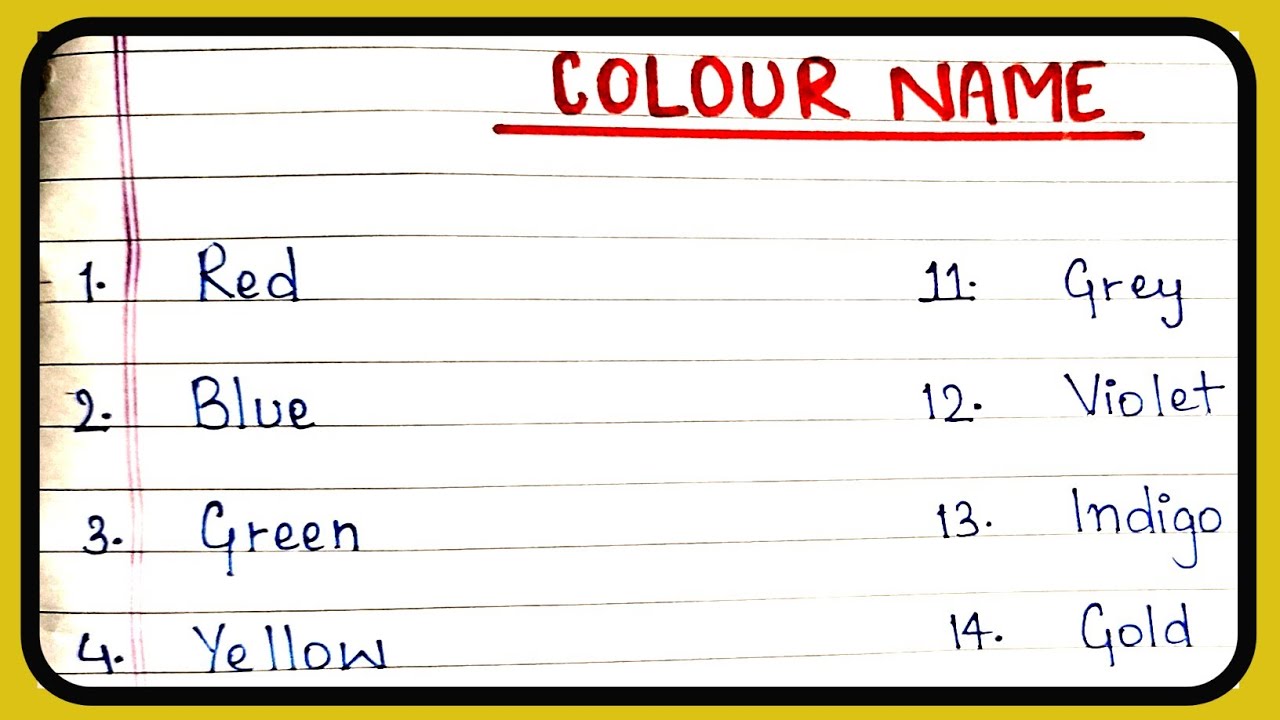 COLOUR NAME
1. Red
11. Grey
2. Blue
12. Violet
3. Green
13. Indigo
4. Yellow
14. Gold